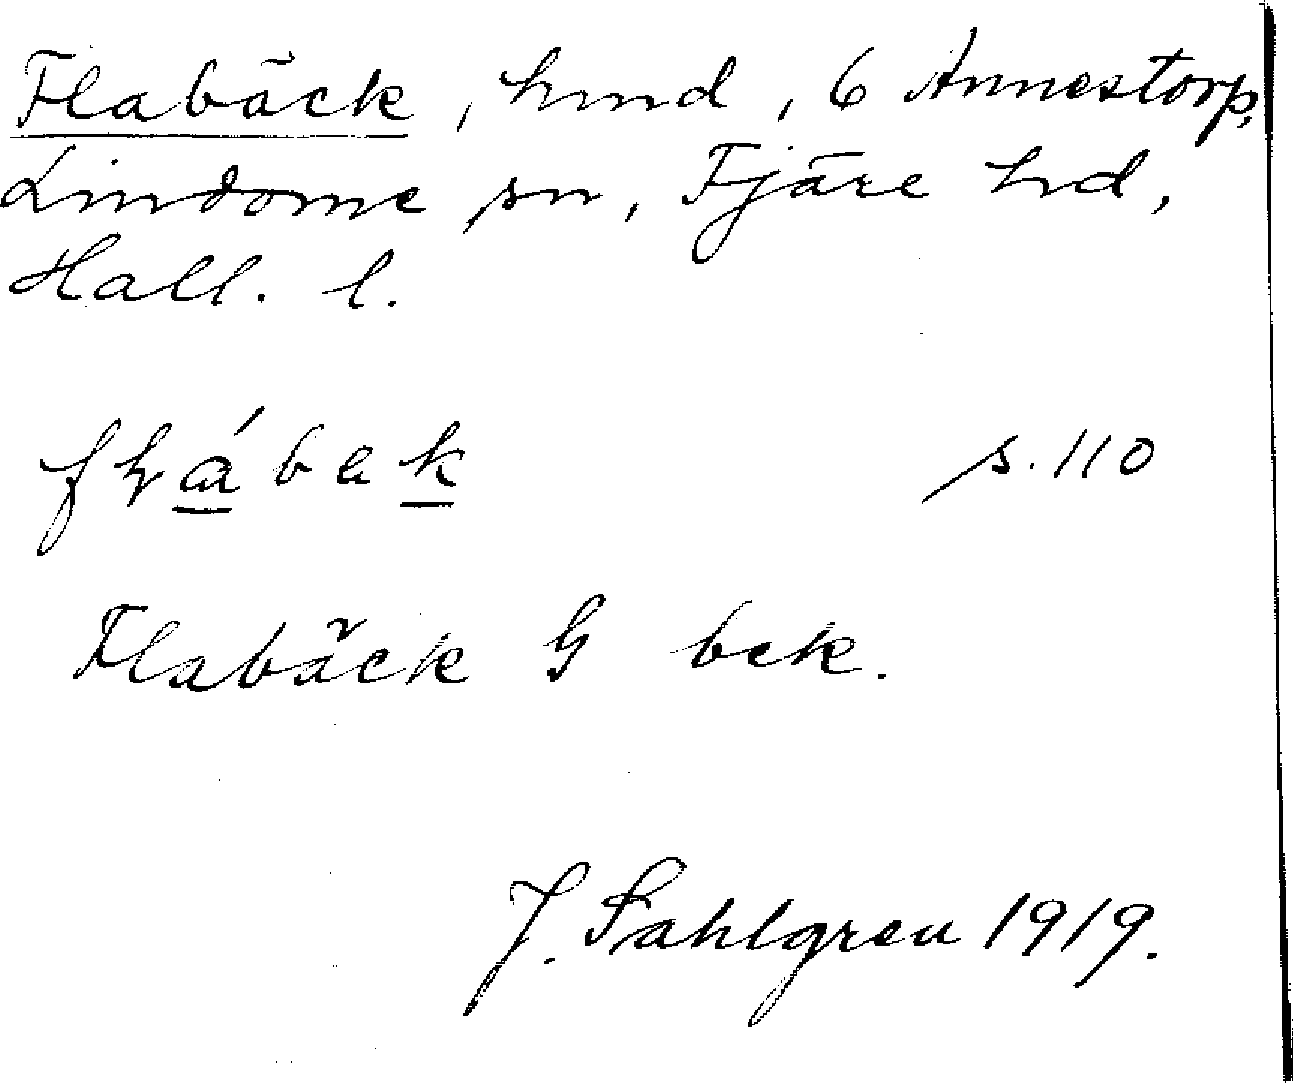 Flabäck, hmd, 6 Annestorp,
Lindome sn, Fjäre hd,
Hall. l.
s. 110
Flabäck G bek.
J. Sahlgren 1919.